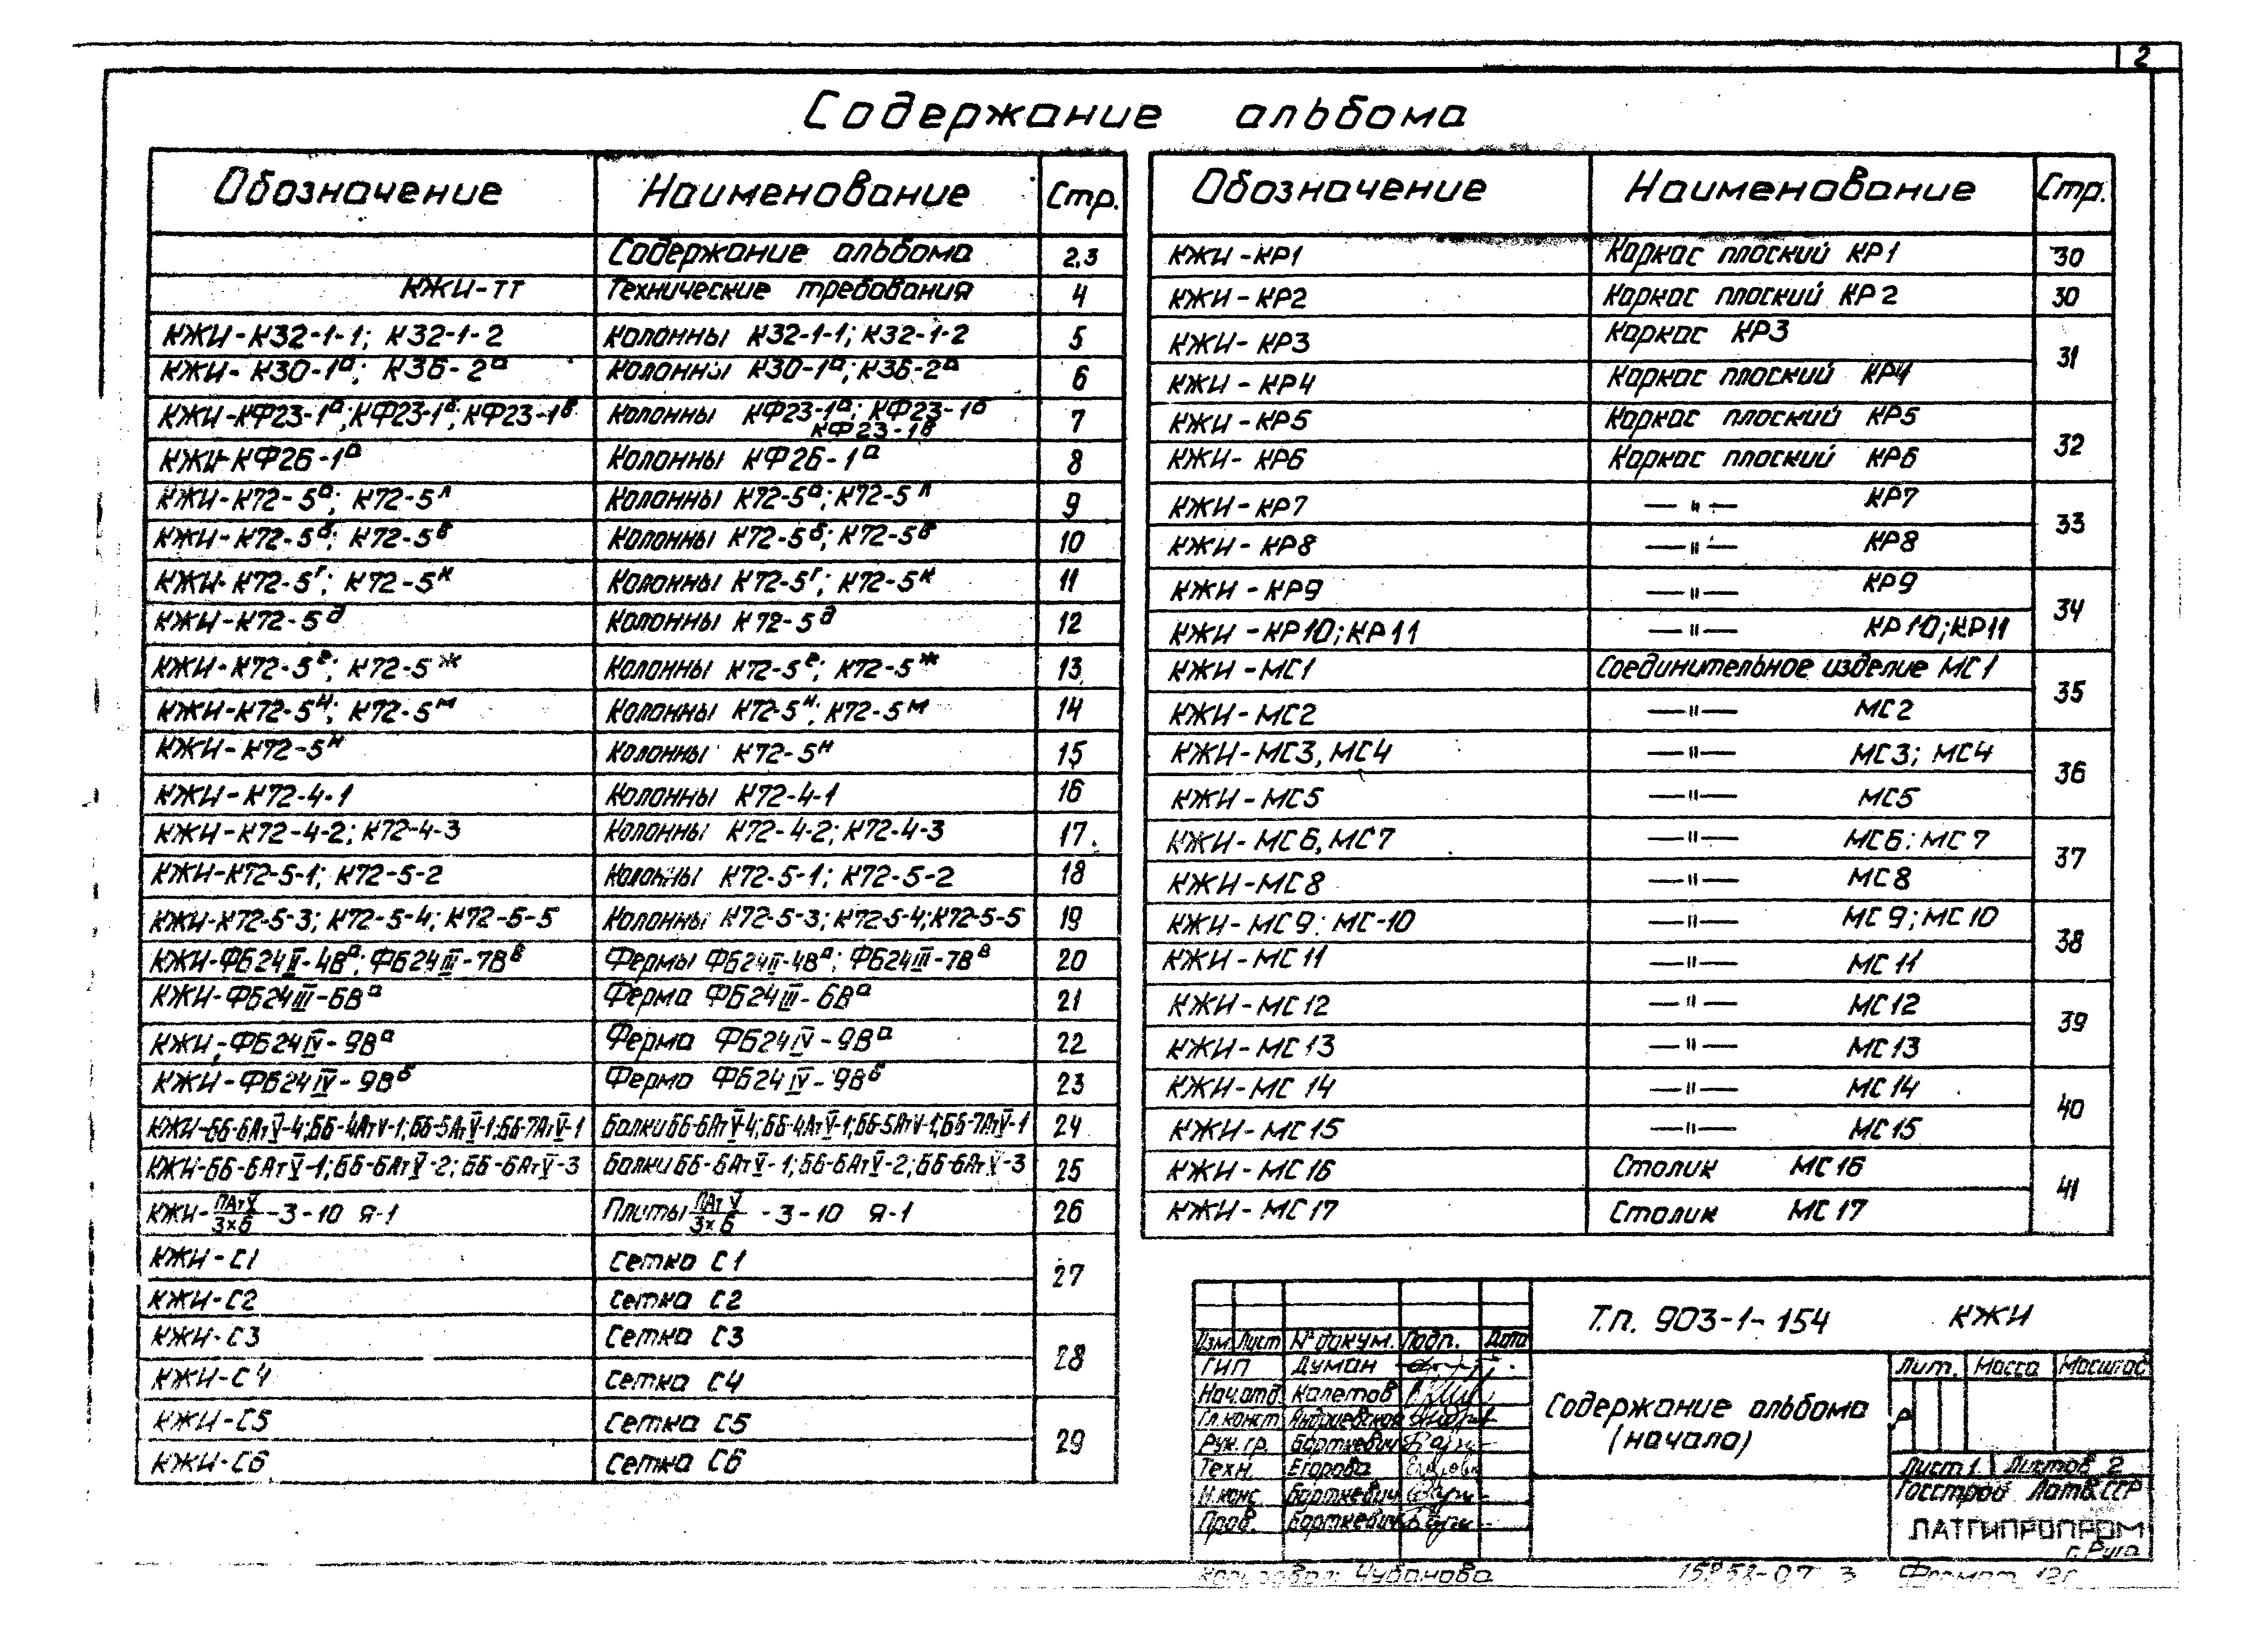 2
Содержание альбома
Обозначение Наименование Стр.
Содержание альбома 2,3
КЖИ-ТТ Технические требования 4
КЖИ-К32-1-1; К32-1-2 Колонны К32-1-1; К32-1-2 5
КЖИ-К30-1а; К36-2а Колонны К30-1а; К36-2а 6
КЖИ-КФ23-1а; КФ23-1б; КФ23-1в Колонны КФ23-1а; КФ23-1б
КФ23-1в 7
КЖИ-КФ26-1а Колонны КФ26-1а 8
КЖИ-К72-5а; К72-5л Колонны К72-5а; К72-5л 9
КЖИ-К72-5б; К72-5в Колонны К72-5б; К72-5в 10
КЖИ-К72-5г; К72-5к Колонны К72-5г; К72-5к 11
КЖИ-К72-5д Колонны К72-5д 12
КЖИ-К72-5е; К72-5ж Колонны К72-5е; К72-5ж 13
КЖИ-К72-5и; К72-5м Колонны К72-5и; К72-5м 14
КЖИ-К72-5н Колонны К72-5н 15
КЖИ-К72-4-1 Колонны К72-4-1 16
КЖИ-К72-4-2; К72-4-3 Колонны К72-4-2; К72-4-3 17
КЖИ-К72-5-1; К72-5-2 Колонны К72-5-1; К72-5-2 18
КЖИ-К72-5-3; К72-5-4; К72-5-5 Колонны К72-5-3; К72-5-4; К72-5-5 19
КЖИ-ФБ24II-4Ва; ФБ24III-7Вв Фермы ФБ24II-4Ва; ФБ24III-7Вв 20
КЖИ-ФБ24III-6Ва Ферма ФБ24III-6Ва 21
КЖИ-ФБ24IV-9Ва Ферма ФБ24IV-9Ва 22
КЖИ-ФБ24IV-9Вб Ферма ФБ24IV-9Вб 23
КЖИ-ББ-6АтV-4; ББ-4АтV-1; ББ-5АтV-1; ББ-7АтV-1 Балки ББ-6АтV-4; ББ-4АтV-1; ББ-5АтV-1; ББ-7АтV-1 24
КЖИ-ББ-6АтV-1; ББ-6АтV-2; ББ-6АтV-3 Балки ББ-6АтV-1; ББ-6АтV-2; ББ-6АтV-3 25
КЖИ-ПАтV/3х6-3-10 Я-1 Плиты ПАтV/3х6-3-10 Я-1 26
КЖИ-С1 Сетка С1 27
КЖИ-С2 Сетка С2
КЖИ-С3 Сетка С3 28
КЖИ-С4 Сетка С4
КЖИ-С5 Сетка С5 29
КЖИ-С6 Сетка С6
Обозначение Наименование Стр.
КЖИ-КР1 Каркас плоский КР1 30
КЖИ-КР2 Каркас плоский КР2 30
КЖИ-КР3 Каркас КР3 31
КЖИ-КР4 Каркас плоский КР4
КЖИ-КР5 Каркас плоский КР5 32
КЖИ-КР6 Каркас плоский КР6
КЖИ-КР7 —"— КР7 33
КЖИ-КР8 —"— КР8
КЖИ-КР9 —"— КР9 34
КЖИ-КР10; КР11 —"— КР10; КР11
КЖИ-МС1 Соединительное изделие МС1 35
КЖИ-МС2 —"— МС2
КЖИ-МС3, МС4 —"— МС3; МС4 36
КЖИ-МС5 —"— МС5
КЖИ-МС6, МС7 —"— МС6; МС7 37
КЖИ-МС8 —"— МС8
КЖИ-МС9; МС-10 —"— МС9; МС10 38
КЖИ-МС11 —"— МС11
КЖИ-МС12 —"— МС12 39
КЖИ-МС13 —"— МС13
КЖИ-МС14 —"— МС14 40
КЖИ-МС15 —"— МС15
КЖИ-МС16 Столик МС16 41
КЖИ-МС17 Столик МС17
Т.п. 903-1-154 КЖИ
Изм. Лист № докум. Подп. Дата
ГИП Думан
Нач.отд. Калетов
Гл.конст.
Рук. гр. Барткевич
Техн. Егорова
Н.конс. Барткевич
Пров. Барткевич
Содержание альбома
(начало)
Лит. Масса Масштаб
Р
Лист 1 Листов 2
Госстрой Латв.ССР
ЛАТГИПРОПРОМ
г. Рига
Копировал: Чубанова 15852-07 3 Формат 12г